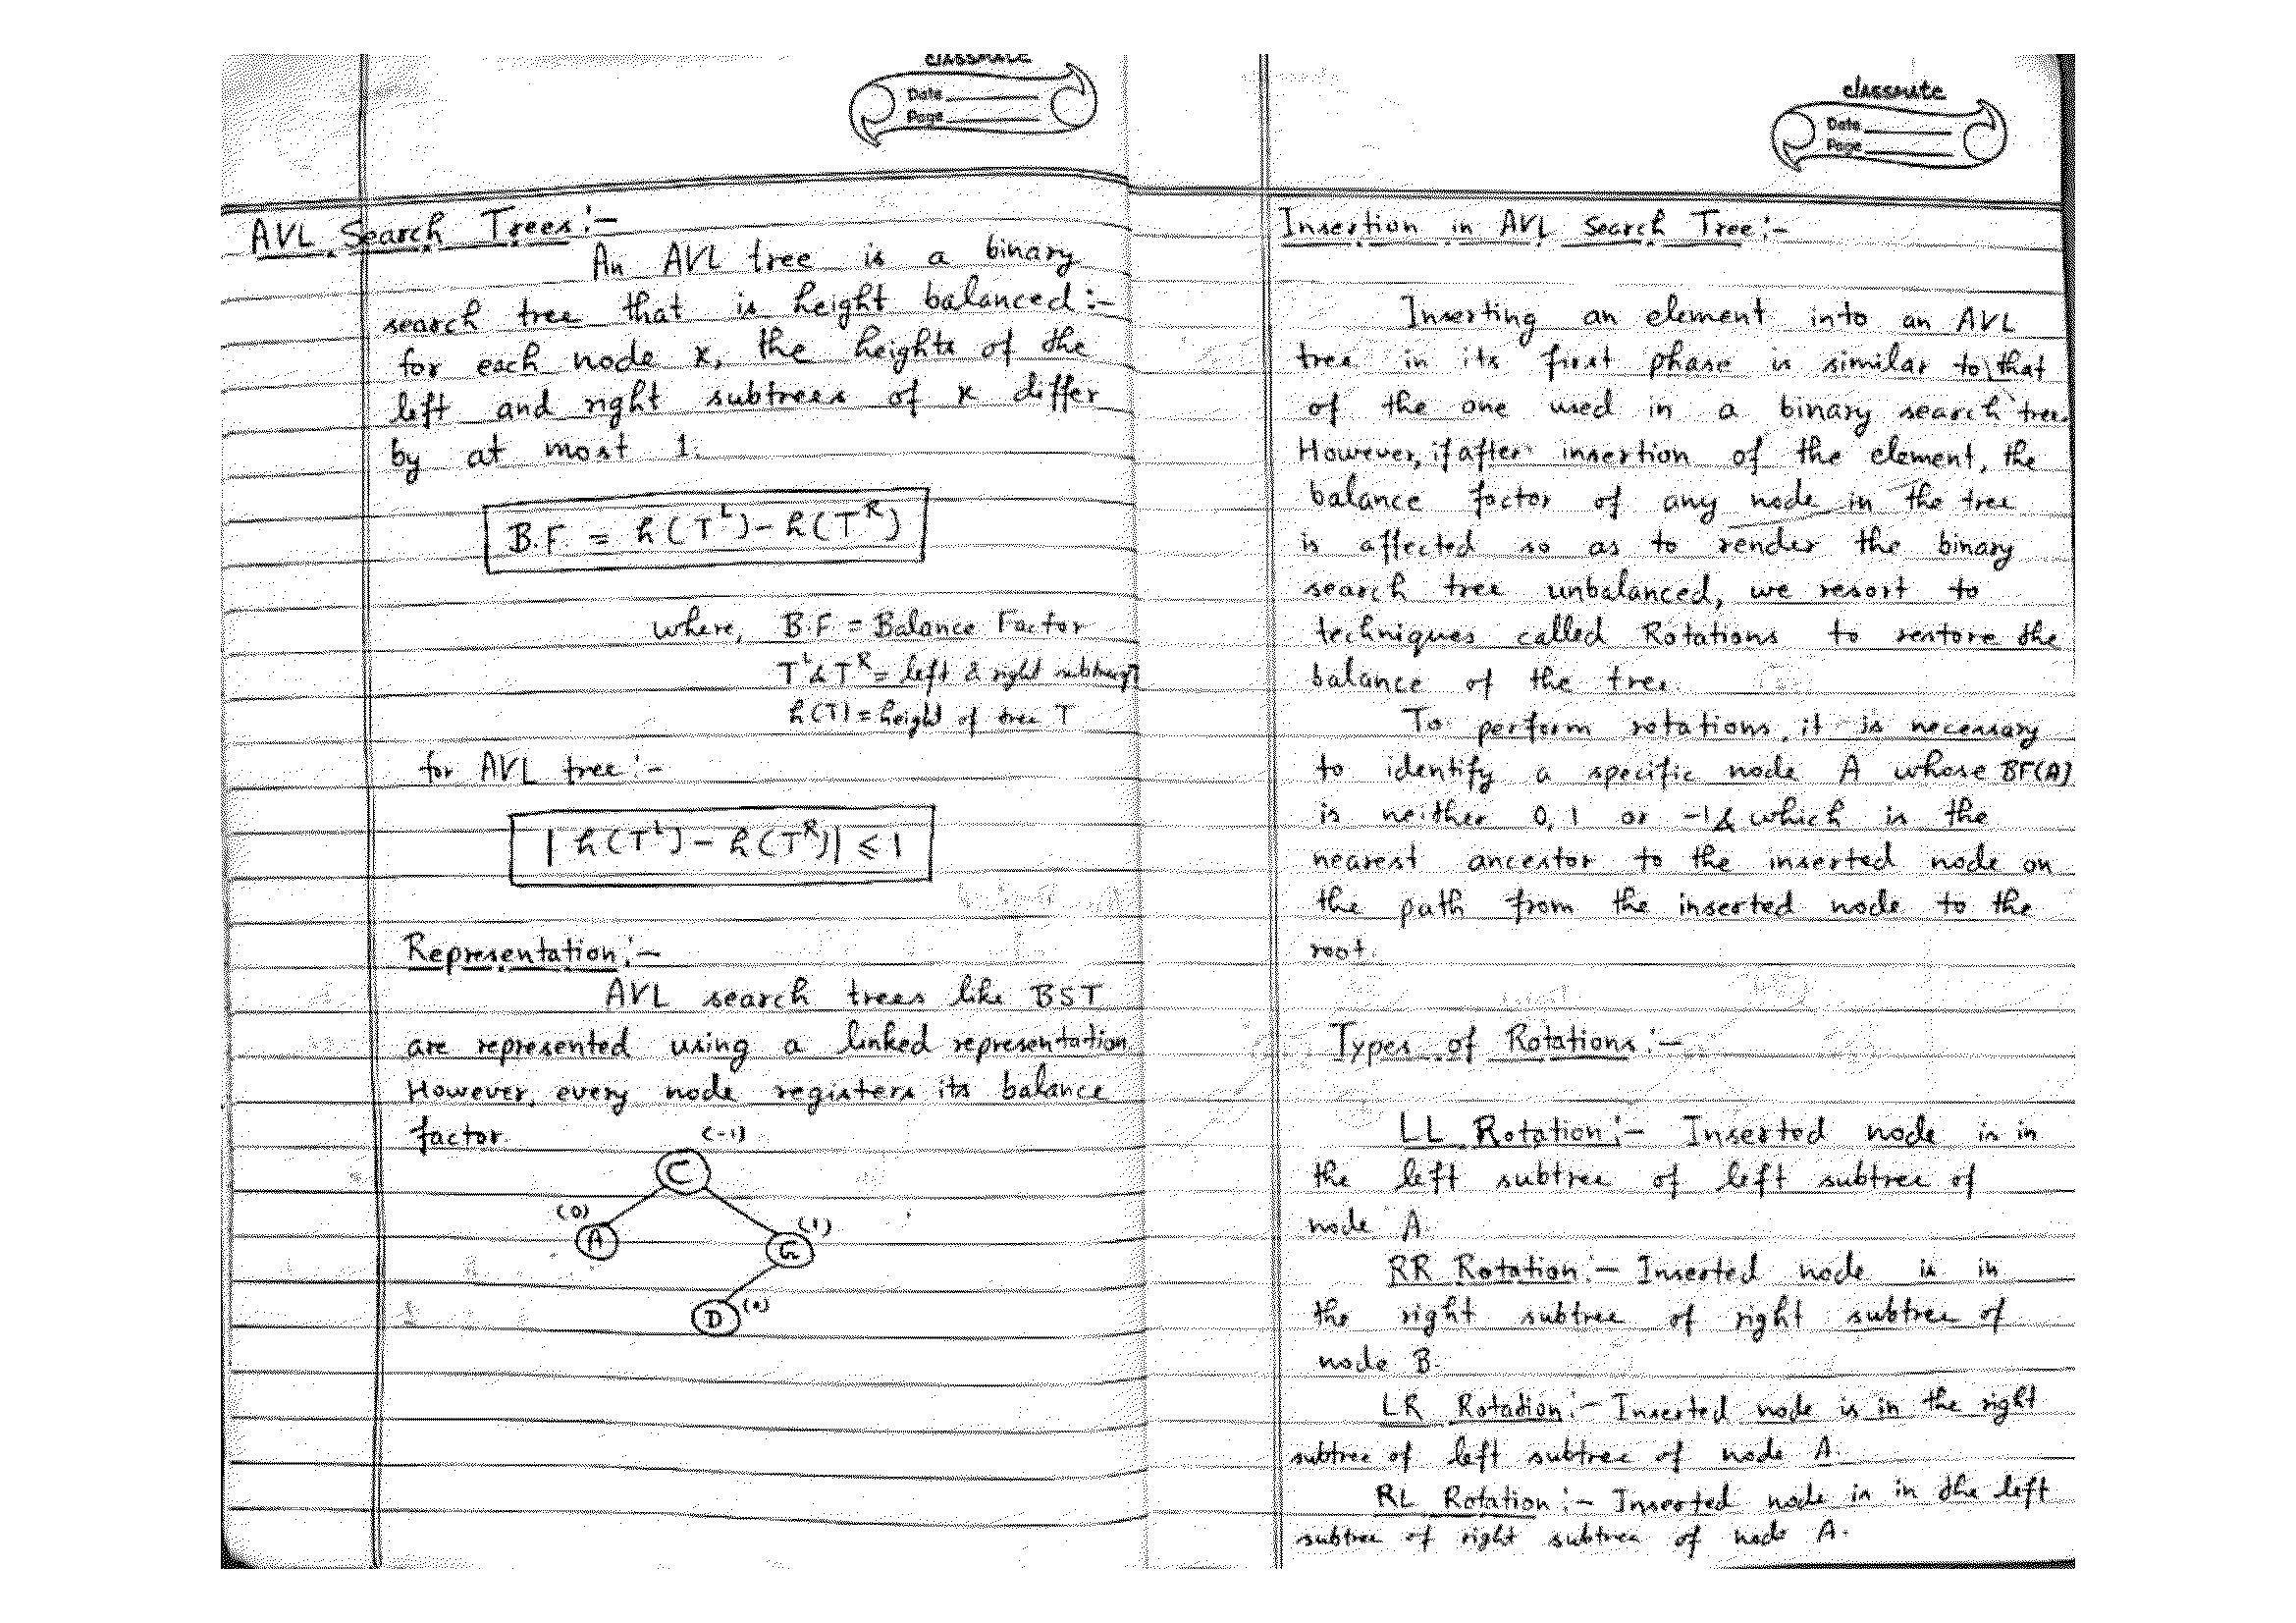 classmate
Date
Page
AVL Search Trees:-
An AVL tree is a binary
search tree that is height balanced:-
for each node x, the heights of the
left and right subtrees of x differ
by at most 1.
B.F. = h(T^L) - h(T^R)
where, B.F. = Balance Factor
T^L & T^R = left & right subtrees
h(T) = height of tree T
for AVL tree:-
| h(T^L) - h(T^R)| ≤ 1
Representation:-
AVL search trees like BST
are represented using a linked representation.
However, every node registers its balance
factor.
(-1)
C
(0)
(1)
A
G
D (0)
classmate
Date
Page
Insertion in AVL Search Tree:-
Inserting an element into an AVL
tree in its first phase is similar to that
of the one used in a binary search tree.
However, if after insertion of the element, the
balance factor of any node in the tree
is affected so as to render the binary
search tree unbalanced, we resort to
techniques called Rotations to restore the
balance of the tree.
To perform rotations, it is necessary
to identify a specific node A whose BF(A)
is neither 0, 1 or -1 & which is the
nearest ancestor to the inserted node on
the path from the inserted node to the
root.
Types of Rotations:-
LL Rotation:- Inserted node is in
the left subtree of left subtree of
node A.
RR Rotation:- Inserted node is in
the right subtree of right subtree of
node B.
LR Rotation:- Inserted node is in the right
subtree of left subtree of node A.
RL Rotation:- Inserted node is in the left
subtree of right subtree of node A.